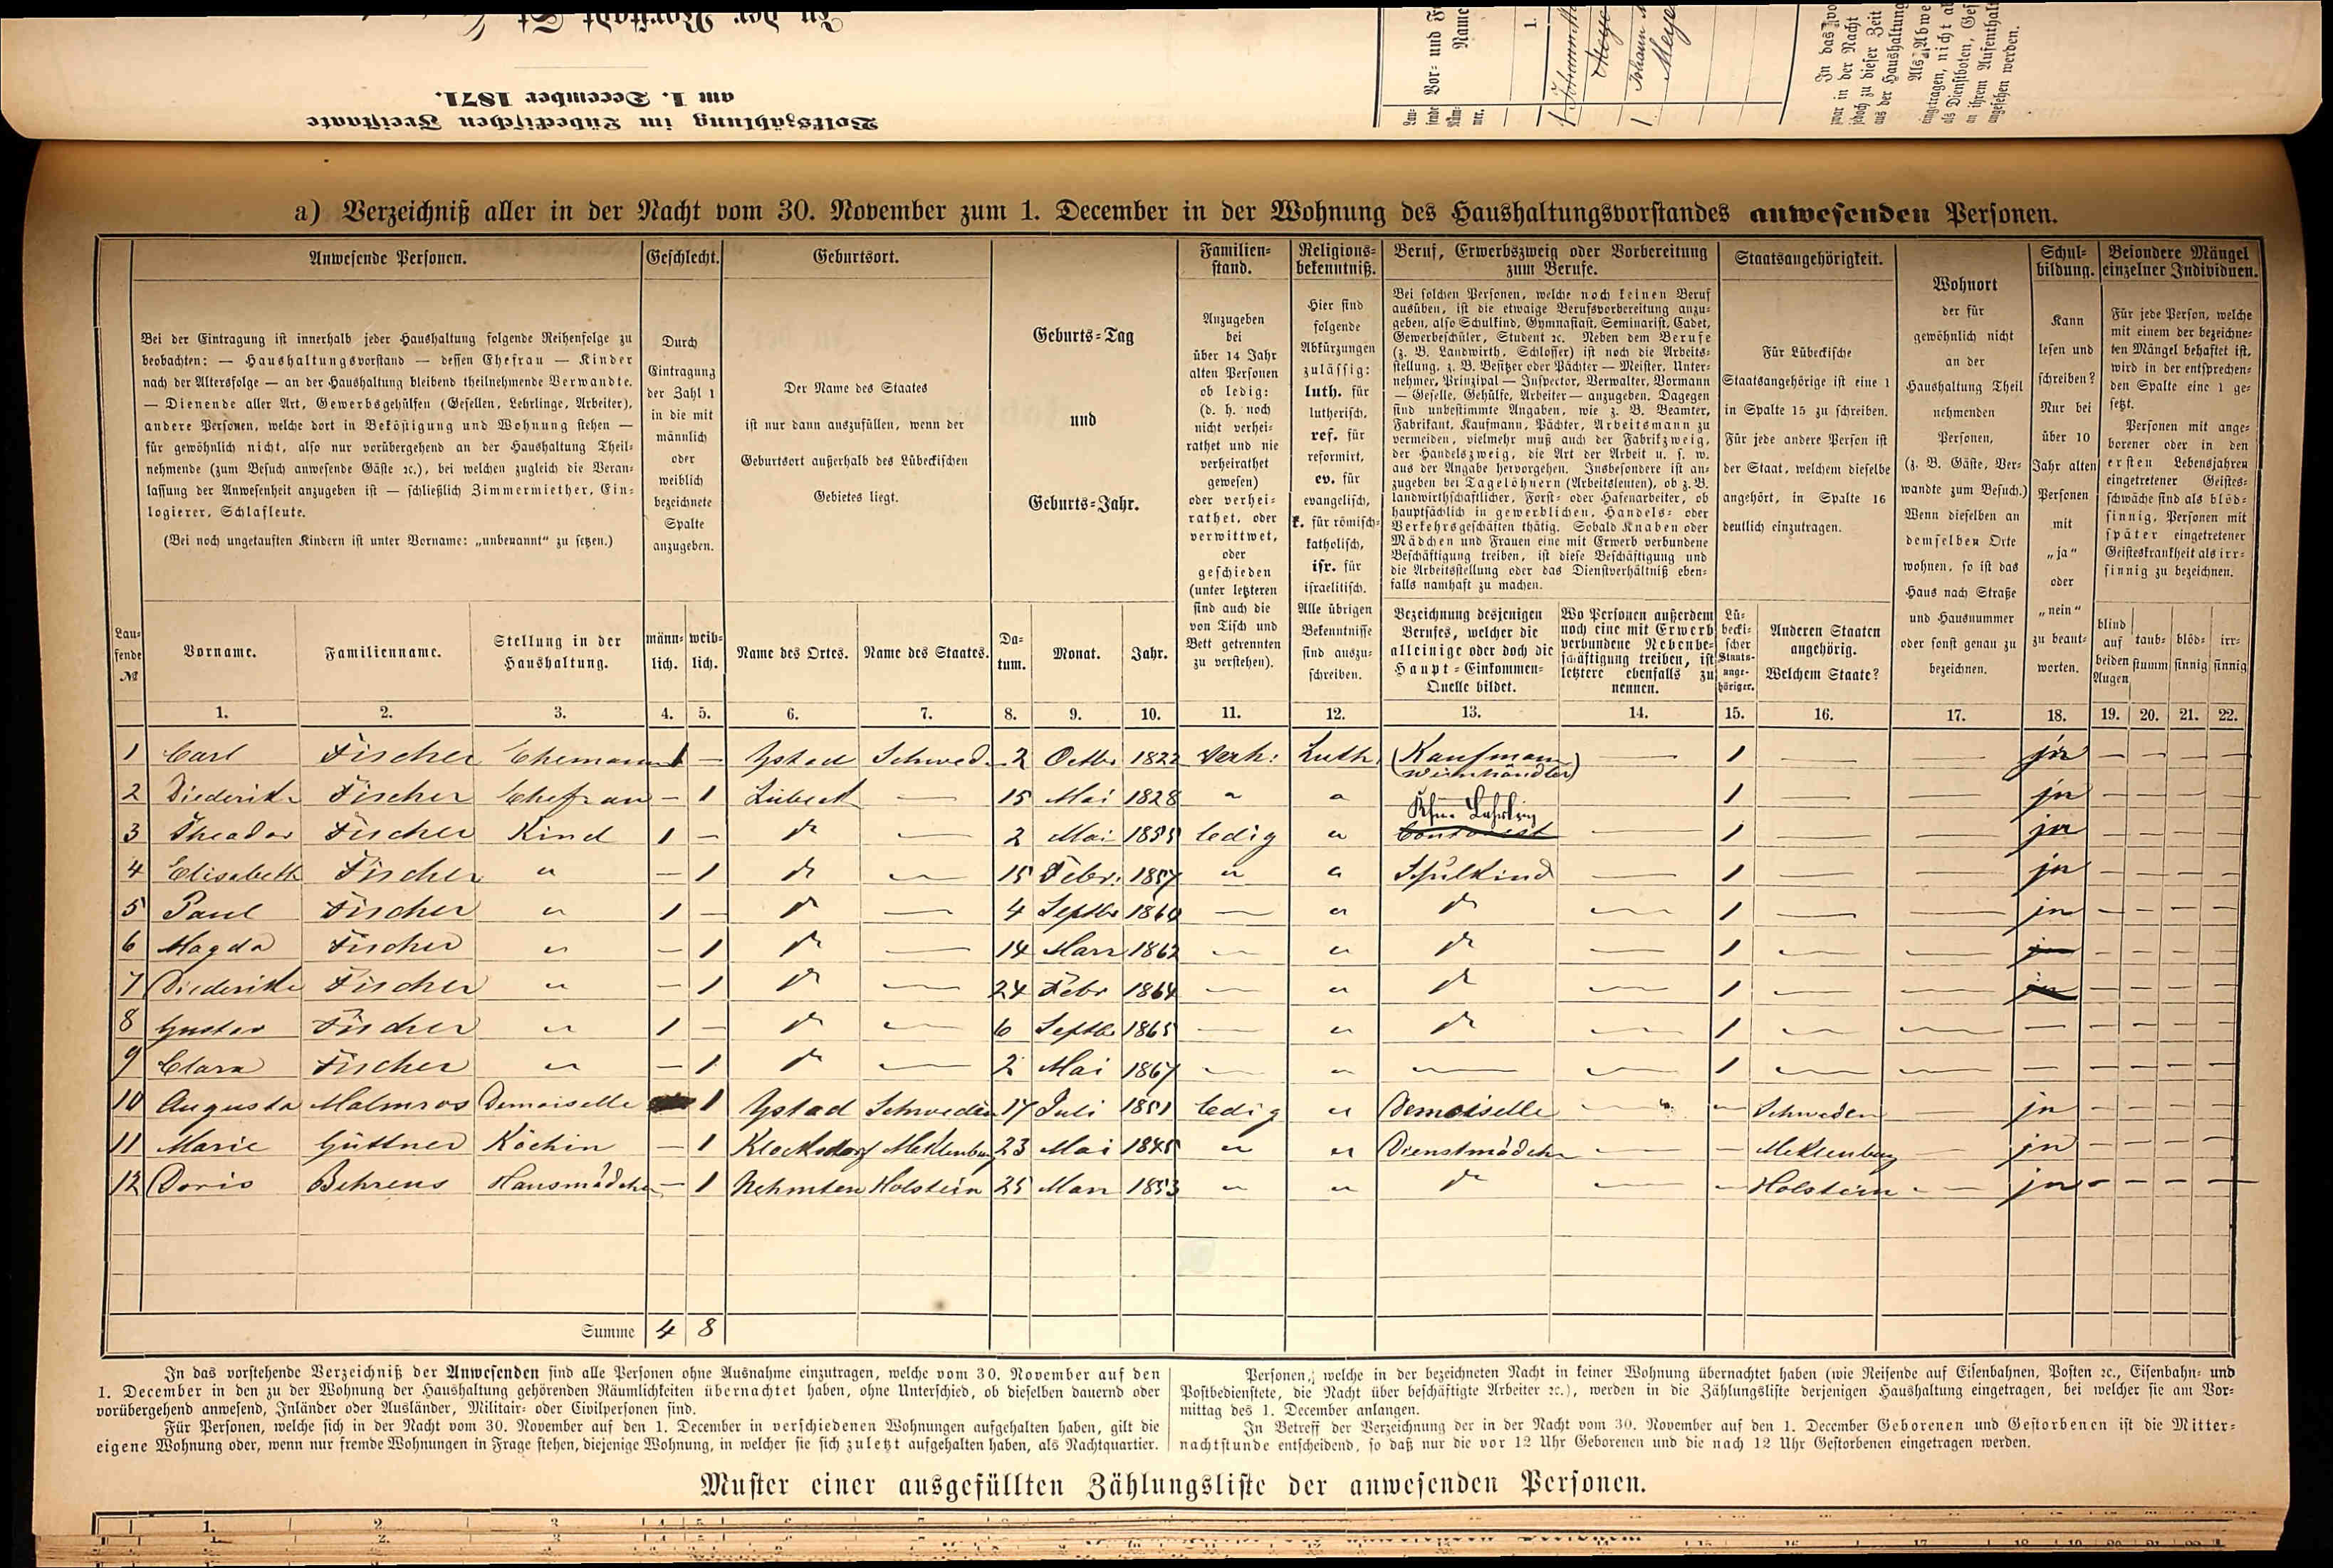 In der Vorstadt St.
Volkszählung im Lübeckischen Freistaate
am 1. December 1871.
Lau-
fende
Num-
mer.
Vor- und F
Name
1.
1 Johann
Meyer
1 Johann
Meye
In das vo
zwar in der Nacht
jedoch zu dieser Zeit
aus der Haushaltung
Als Abwe
eingetragen, nicht ab
als Dienstboten, Ges
an ihrem Aufenthalt
angesehen werden.
a) Verzeichniß aller in der Nacht vom 30. November zum 1. December in der Wohnung des Haushaltungsvorstandes anwesenden Personen.
Anwesende Personen.
Bei der Eintragung ist innerhalb jeder Haushaltung folgende Reihenfolge zu
beobachten: — Haushaltungsvorstand — dessen Ehefrau — Kinder
nach der Altersfolge — an der Haushaltung bleibend theilnehmende Verwandte.
— Dienende aller Art, Gewerbsgehülfen (Gesellen, Lehrlinge, Arbeiter),
andere Personen, welche dort in Beköstigung und Wohnung stehen —
für gewöhnlich nicht, also nur vorübergehend an der Haushaltung Theil-
nehmende (zum Besuch anwesende Gäste ꝛc.), bei welchen zugleich die Veran-
lassung der Anwesenheit anzugeben ist — schließlich Zimmermiether, Ein-
logierer, Schlafleute.
(Bei noch ungetauften Kindern ist unter Vorname: „unbenannt“ zu setzen.)
Geschlecht.
Durch
Eintragung
der Zahl 1
in die mit
männlich
oder
weiblich
bezeichnete
Spalte
anzugeben.
Geburtsort.
Der Name des Staates
ist nur dann auszufüllen, wenn der
Geburtsort außerhalb des Lübeckischen
Gebietes liegt.
Geburts-Tag
und
Geburts-Jahr.
Familien-
stand.
Anzugeben
bei
über 14 Jahr
alten Personen
ob ledig:
(d. h. noch
nicht verhei-
rathet und nie
verheirathet
gewesen)
oder verhei-
rathet, oder
verwittwet,
oder
geschieden
(unter letzteren
sind auch die
von Tisch und
Bett getrennten
zu verstehen).
Religions-
bekenntniß.
Hier sind
folgende
Abkürzungen
zulässig:
luth. für
lutherisch,
ref. für
reformirt,
ev. für
evangelisch,
k. für römisch-
katholisch,
isr. für
israelitisch.
Alle übrigen
Bekenntnisse
sind auszu-
schreiben.
Beruf, Erwerbszweig oder Vorbereitung
zum Berufe.
Bei solchen Personen, welche noch keinen Beruf
ausüben, ist die etwaige Berufsvorbereitung anzu-
geben, also Schulkind, Gymnasiast, Seminarist, Cadet,
Gewerbeschüler, Student ꝛc. Neben dem Berufe
(z. B. Landwirth, Schlosser) ist noch die Arbeits-
stellung, z. B. Besitzer oder Pächter — Meister, Unter-
nehmer, Prinzipal — Inspector, Verwalter, Vormann
— Geselle, Gehülfe, Arbeiter — anzugeben. Dagegen
sind unbestimmte Angaben, wie z. B. Beamter,
Fabrikant, Kaufmann, Pächter, Arbeitsmann zu
vermeiden, vielmehr muß auch der Fabrikzweig,
der Handelszweig, die Art der Arbeit u. s. w.
aus der Angabe hervorgehen. Insbesondere ist an-
zugeben bei Tagelöhnern (Arbeitsleuten), ob z. B.
landwirthschaftlicher, Forst- oder Hafenarbeiter, ob
hauptsächlich in gewerblichen, Handels- oder
Verkehrsgeschäften thätig. Sobald Knaben oder
Mädchen und Frauen eine mit Erwerb verbundene
Beschäftigung treiben, ist diese Beschäftigung und
die Arbeitsstellung oder das Dienstverhältniß eben-
falls namhaft zu machen.
Staatsangehörigkeit.
Für Lübeckische
Staatsangehörige ist eine 1
in Spalte 15 zu schreiben.
Für jede andere Person ist
der Staat, welchem dieselbe
angehört, in Spalte 16
deutlich einzutragen.
Wohnort
der für
gewöhnlich nicht
an der
Haushaltung Theil
nehmenden
Personen,
(z. B. Gäste, Ver-
wandte zum Besuch.)
Wenn dieselben an
demselben Orte
wohnen, so ist das
Haus nach Straße
und Hausnummer
oder sonst genau zu
bezeichnen.
Schul-
bildung.
Kann
lesen und
schreiben?
Nur bei
über 10
Jahr alten
Personen
mit
„ja“
oder
„nein“
zu beant-
worten.
Besondere Mängel
einzelner Individuen.
Für jede Person, welche
mit einem der bezeichne-
ten Mängel behaftet ist,
wird in der entsprechen-
den Spalte eine 1 ge-
setzt.
Personen mit ange-
borener oder in den
ersten Lebensjahren
eingetretener Geistes-
schwäche sind als blöd-
sinnig, Personen mit
später eingetretener
Geisteskrankheit als irr-
sinnig zu bezeichnen.
Lau-
fende
№
Vorname.
Familienname.
Stellung in der
Haushaltung.
männ-
lich.
weib-
lich.
Name des Ortes.
Name des Staates.
Da-
tum.
Monat.
Jahr.
Bezeichnung desjenigen
Berufes, welcher die
alleinige oder doch die
Haupt-Einkommen-
Quelle bildet.
Wo Personen außerdem
noch eine mit Erwerb
verbundene Nebenbe-
schäftigung treiben, ist
letztere ebenfalls zu
nennen.
Lü-
becki-
scher
Staats-
ange-
höriger.
Anderen Staaten
angehörig.
Welchem Staate?
blind
auf
beiden
Augen
taub-
stumm
blöd-
sinnig
irr-
sinnig
1. 2. 3. 4. 5. 6. 7. 8. 9. 10. 11. 12. 13. 14. 15. 16. 17. 18. 19. 20. 21. 22.
1 Carl Fischer Ehemann 1 — Ystad Schwed. 2 Octbr 1822 Verh: Luth. (Kaufmann — 1 — — ja — — — —
Weinhändler)
2 Diederike Fischer Ehefrau — 1 Lübeck — 15 Mai 1828 " " — 1 — — ja — — — —
Kfm. Lehrling
3 Theodor Fischer Kind 1 — do — 2 Mai 1855 ledig " Contorist — 1 — — ja — — — —
4 Elisabeth Fischer " — 1 do — 15 Febr: 1857 " " Schulkind — 1 — — ja — — — —
5 Paul Fischer " 1 — do — 4 Septbr 1860 — " do — 1 — — ja — — — —
6 Magda Fischer " — 1 do — 14 Marz 1862 — " do — 1 — — ja — — — —
7 Diederike Fischer " — 1 do — 24 Febr 1864 — " do — 1 — — ja — — — —
8 Gustav Fischer " 1 — do — 6 Septbr 1865 — " do — 1 — — — — — — —
9 Clara Fischer " — 1 do — 2 Mai 1867 — " — — 1 — — — — — — —
10 Augusta Malmros Demoiselle 1 Ystad Schweden 17 Juli 1851 ledig " Demoiselle — — Schweden ja — — — —
11 Marie Güttner Köchin — 1 Klocksdorf Meklenburg 23 Mai 1845 " " Dienstmädchen — — Meklenburg — ja — — — —
12 Doris Behrens Hausmädchen — 1 Nehmten Holstein 25 Marz 1853 " " do — — Holstein — ja — — — —
Summe 4 8
In das vorstehende Verzeichniß der Anwesenden sind alle Personen ohne Ausnahme einzutragen, welche vom 30. November auf den
1. December in den zu der Wohnung der Haushaltung gehörenden Räumlichkeiten übernachtet haben, ohne Unterschied, ob dieselben dauernd oder
vorübergehend anwesend, Inländer oder Ausländer, Militair- oder Civilpersonen sind.
Für Personen, welche sich in der Nacht vom 30. November auf den 1. December in verschiedenen Wohnungen aufgehalten haben, gilt die
eigene Wohnung oder, wenn nur fremde Wohnungen in Frage stehen, diejenige Wohnung, in welcher sie sich zuletzt aufgehalten haben, als Nachtquartier.
Personen, welche in der bezeichneten Nacht in keiner Wohnung übernachtet haben (wie Reisende auf Eisenbahnen, Posten ꝛc., Eisenbahn- und
Postbedienstete, die Nacht über beschäftigte Arbeiter ꝛc.), werden in die Zählungsliste derjenigen Haushaltung eingetragen, bei welcher sie am Vor-
mittag des 1. December anlangen.
In Betreff der Verzeichnung der in der Nacht vom 30. November auf den 1. December Geborenen und Gestorbenen ist die Mitter-
nachtstunde entscheidend, so daß nur die vor 12 Uhr Geborenen und die nach 12 Uhr Gestorbenen eingetragen werden.
Muster einer ausgefüllten Zählungsliste der anwesenden Personen.
1. 2. 3.